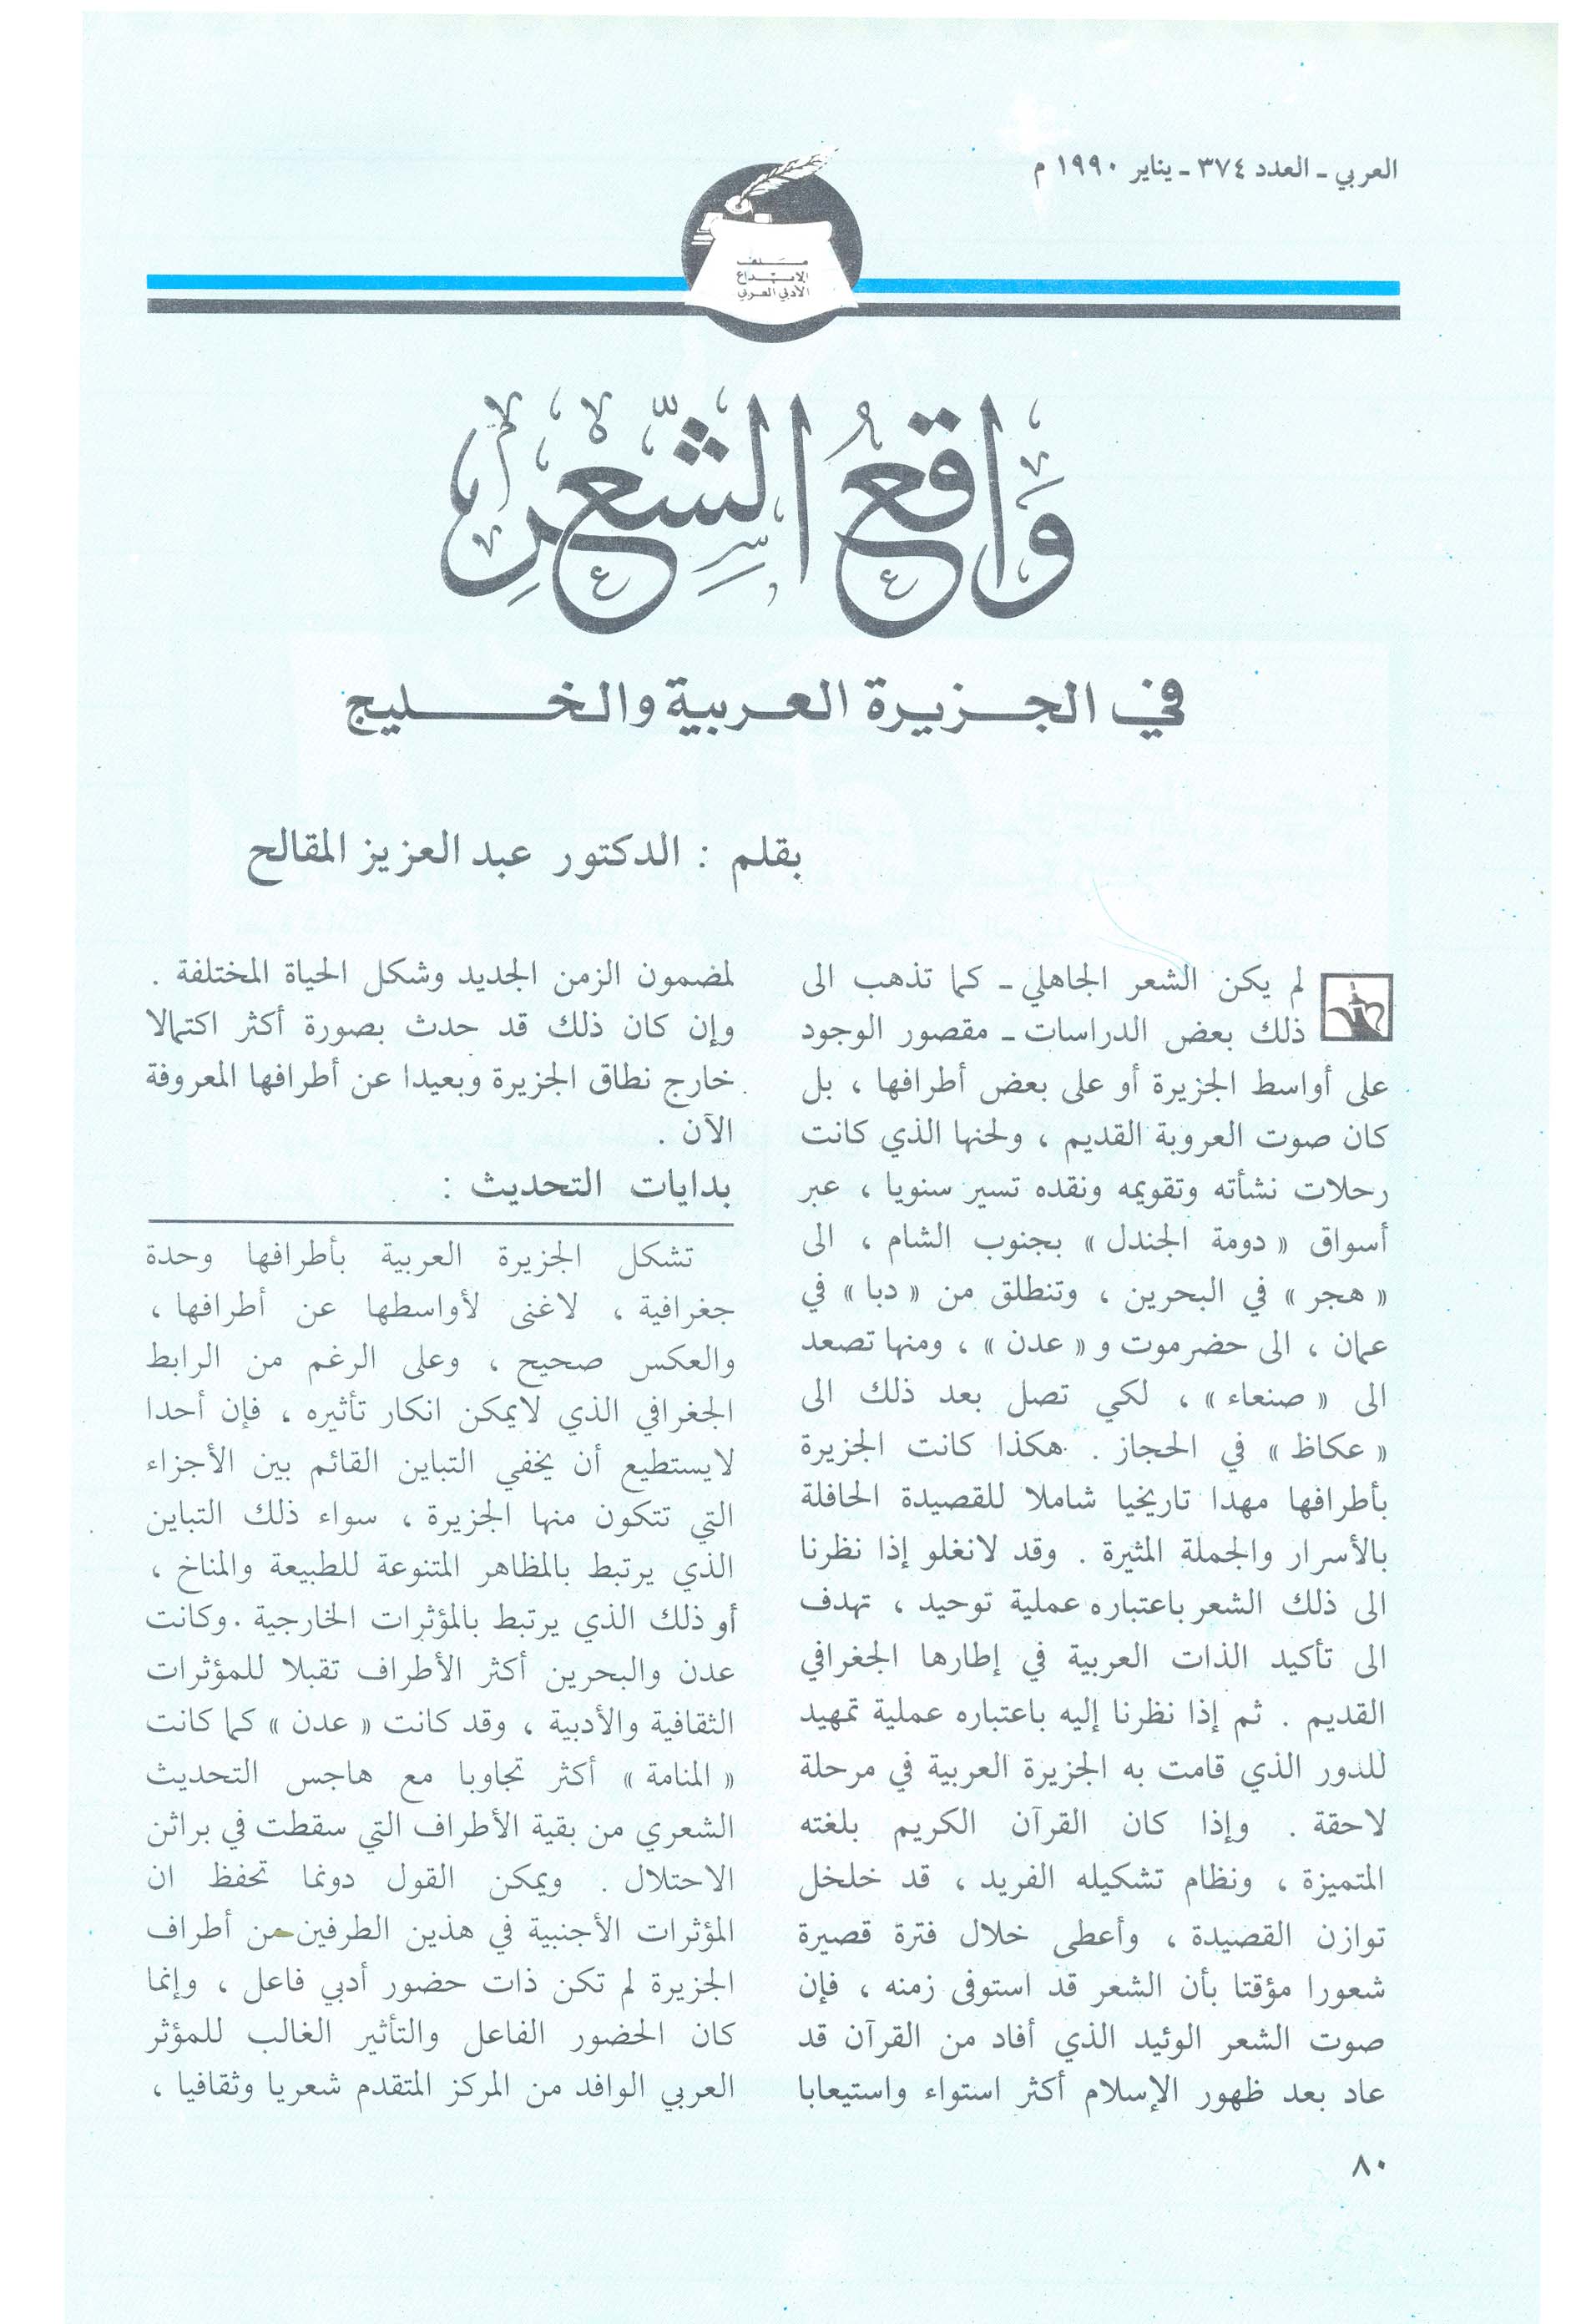 العربي ـ العدد ٣٧٤ ـ يناير ١٩٩٠ م
ملف
الإبداع
الأدبي العربي
وَاقعُ الشِّعْرِ
في الجزيرة العربية والخليج
بقلم : الدكتور عبد العزيز المقالح
لم يكن الشعر الجاهلي ـ كما تذهب الى
ذلك بعض الدراسات ـ مقصور الوجود
على أواسط الجزيرة أو على بعض أطرافها ، بل
كان صوت العروبة القديم ، ولحنها الذي كانت
رحلات نشأته وتقويمه ونقده تسير سنويا ، عبر
أسواق « دومة الجندل » بجنوب الشام ، الى
« هجر » في البحرين ، وتنطلق من « دبا » في
عمان ، الى حضرموت و « عدن » ، ومنها تصعد
الى « صنعاء » ، لكي تصل بعد ذلك الى
« عكاظ » في الحجاز . هكذا كانت الجزيرة
بأطرافها مهدا تاريخيا شاملا للقصيدة الحافلة
بالأسرار والجملة المثيرة . وقد لانغلو إذا نظرنا
الى ذلك الشعر باعتباره عملية توحيد ، تهدف
الى تأكيد الذات العربية في إطارها الجغرافي
القديم . ثم إذا نظرنا إليه باعتباره عملية تمهيد
للدور الذي قامت به الجزيرة العربية في مرحلة
لاحقة . وإذا كان القرآن الكريم بلغته
المتميزة ، ونظام تشكيله الفريد ، قد خلخل
توازن القصيدة ، وأعطى خلال فترة قصيرة
شعورا مؤقتا بأن الشعر قد استوفى زمنه ، فإن
صوت الشعر الوئيد الذي أفاد من القرآن قد
عاد بعد ظهور الإسلام أكثر استواء واستيعابا
لمضمون الزمن الجديد وشكل الحياة المختلفة .
وإن كان ذلك قد حدث بصورة أكثر اكتمالا
خارج نطاق الجزيرة وبعيدا عن أطرافها المعروفة
الآن .
بدايات التحديث :
تشكل الجزيرة العربية بأطرافها وحدة
جغرافية ، لاغنى لأواسطها عن أطرافها ،
والعكس صحيح ، وعلى الرغم من الرابط
الجغرافي الذي لايمكن انكار تأثيره ، فإن أحدا
لايستطيع أن يخفي التباين القائم بين الأجزاء
التي تتكون منها الجزيرة ، سواء ذلك التباين
الذي يرتبط بالمظاهر المتنوعة للطبيعة والمناخ ،
أو ذلك الذي يرتبط بالمؤثرات الخارجية . وكانت
عدن والبحرين أكثر الأطراف تقبلا للمؤثرات
الثقافية والأدبية ، وقد كانت « عدن » كما كانت
« المنامة » أكثر تجاوبا مع هاجس التحديث
الشعري من بقية الأطراف التي سقطت في براثن
الاحتلال . ويمكن القول دونما تحفظ ان
المؤثرات الأجنبية في هذين الطرفين من أطراف
الجزيرة لم تكن ذات حضور أدبي فاعل ، وإنما
كان الحضور الفاعل والتأثير الغالب للمؤثر
العربي الوافد من المركز المتقدم شعريا وثقافيا ،
٨٠